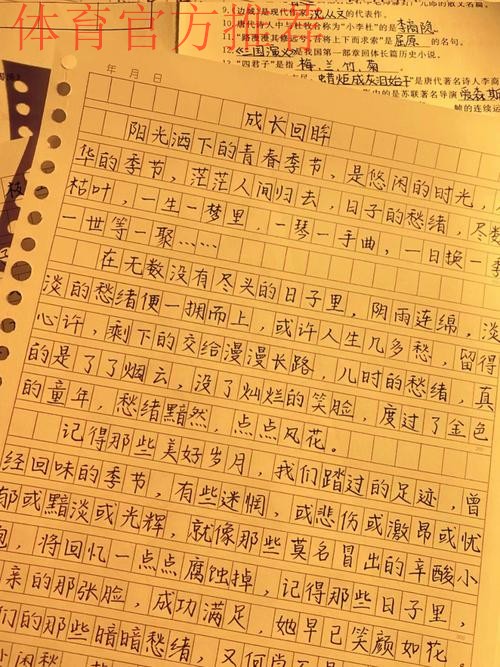 体育官方
9.《边城》是现代作家沈从文的代表作。
10.唐代诗人中与杜牧合称为“小李杜”的是李商隐
11.“路漫漫其修远兮,吾将上下而求索”是屈原的名句。
12.《三国演义》是我国第一部章回体长篇历史小说。
13.“四君子”是指梅、兰、竹、菊
蜡炬成灰泪始干”是唐代著名诗人李商
的是苏联著名导演爱森斯
的连续运
年 月 日
成长回眸
阳光洒下的青春季节,是悠闲的时光,
华的季节,茫茫人间归去,日子的愁绪,尽数
枯叶,一生一梦里,一琴一手曲,一日换一季
一世等一聚……
在无数没有尽头的日子里,阴雨连绵,淡
淡的愁绪便一拥而上,或许人生几多愁,留得
心许,剩下的交给漫漫长路,儿时的愁绪,真
的是了了烟云,没了灿烂的笑脸,度过了金色
的童年,愁绪黯然,点点风花。
记得那些美好岁月,我们踏过的足迹,曾
经回味的季节,有些迷惘,或悲伤或激昂或忧
郁或黯淡或光辉,就像那些莫名冒出的辛酸小
泡,将回忆一点点腐蚀掉,记得那些日子里,
亲的那张脸,成功满足,她早已笑颜如花。
们的那些暗暗愁绪,又何尝不